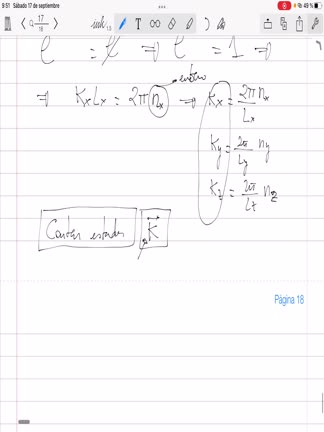 9:51 Sábado 17 de septiembre
49 %
17
18
e = e ⇒ e = 1 ⇒
entero
⇒ KxLx = 2π nx ⇒ Kx = 2π nx / Lx
Ky = 2π/Ly ny
Kz = 2π/Lz nz
Contar estados K⃗
Página 18